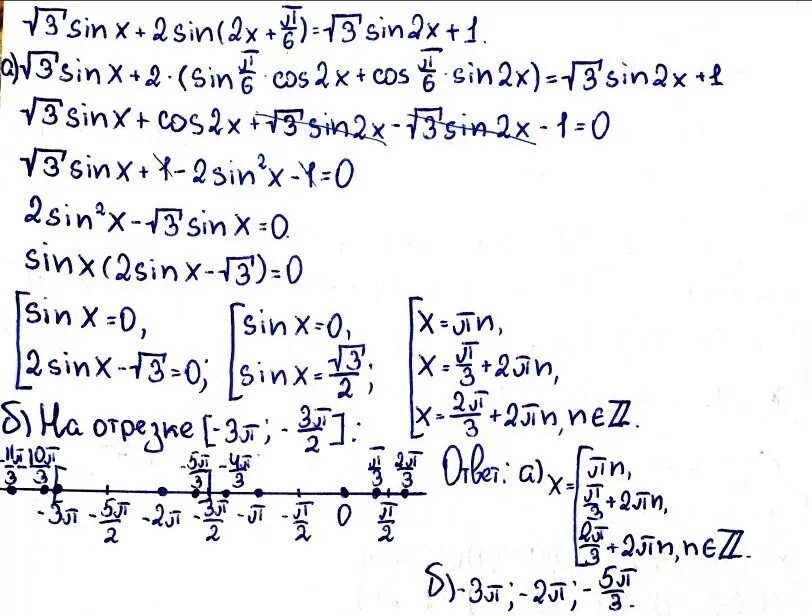 √3 sin x + 2 sin(2x + π/6) = √3 sin 2x + 1.
а) √3 sin x + 2·(sin π/6 · cos 2x + cos π/6 · sin 2x) = √3 sin 2x + 1
√3 sin x + cos 2x + √3 sin 2x - √3 sin 2x - 1 = 0
√3 sin x + 1 - 2 sin²x - 1 = 0
2 sin²x - √3 sin x = 0
sin x (2 sin x - √3) = 0
[ sin x = 0, [ sin x = 0, [ x = πn,
2 sin x - √3 = 0; sin x = √3/2; x = π/3 + 2πn,
x = 2π/3 + 2πn, n ∈ ℤ.
б) На отрезке [-3π; -3π/2]:
-11π/3 -10π/3 -5π/3 -4π/3 π/3 2π/3
-3π -5π/2 -2π -3π/2 -π -π/2 0 π/2
Ответ: а) x = [ πn,
π/3 + 2πn,
2π/3 + 2πn, n ∈ ℤ.
б) -3π; -2π; -5π/3.